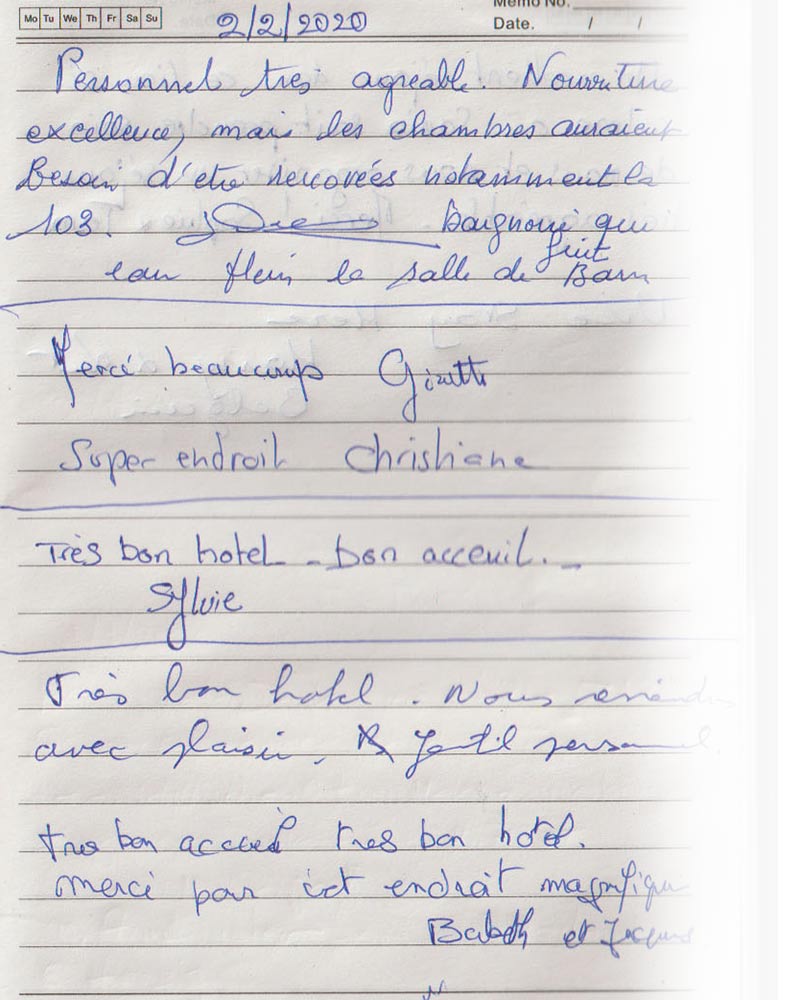 Mo Tu We Th Fr Sa Su
Memo No.
2/2/2020
Date. / /
Personnel très agreable. Nourriture
excellence, mais les chambres auraient
Besoin d'etre renovées notamment la
103. Baignoire qui
fuit
eau plein la salle de Bain
Merci beaucoup
Super endroit Christiane
Très bon hotel - bon acceuil. -
Sylvie
Très bon hotel. Nous
avec plaisir, Gentil personnel.
très bon accueil tres bon hotel.
merci pour cet endroit magnifique
Babeth et Jacques